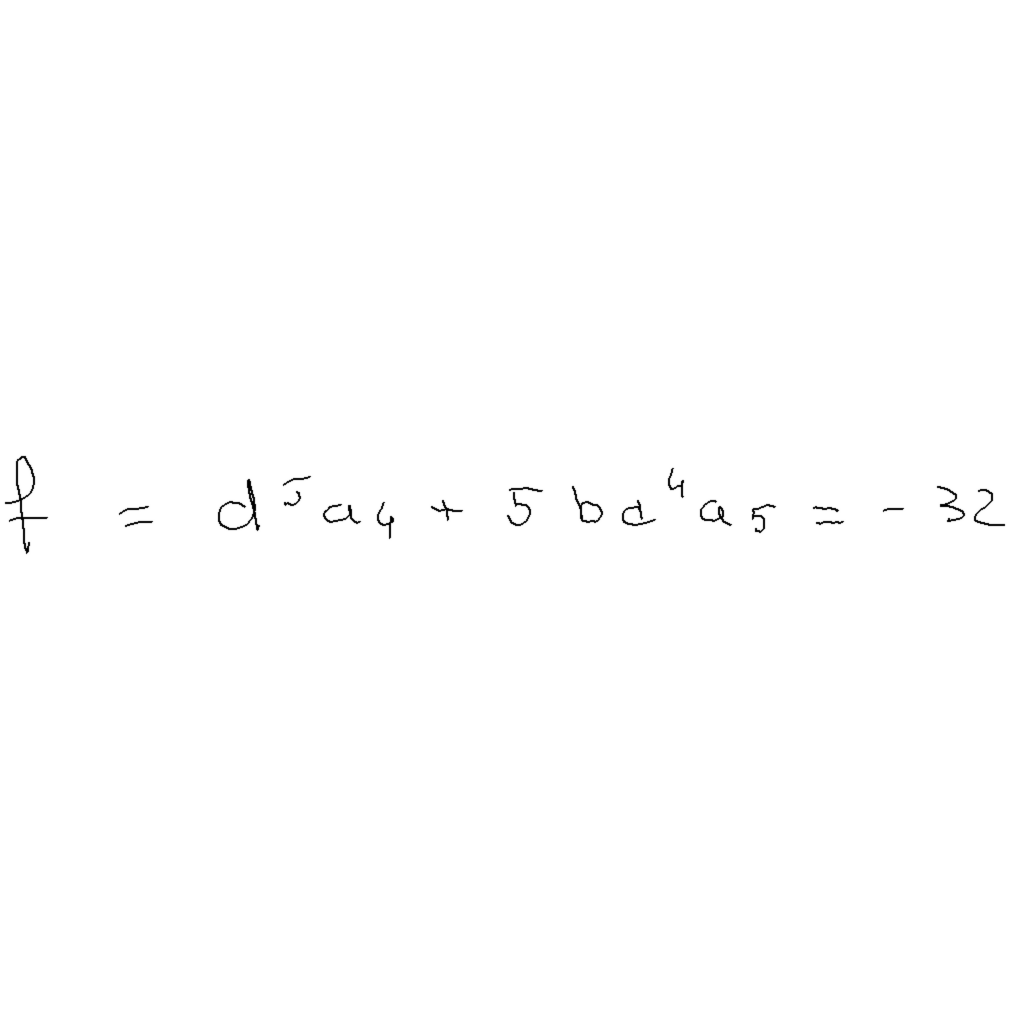 f = d⁵a₄ + 5bd⁴a₅ = -32